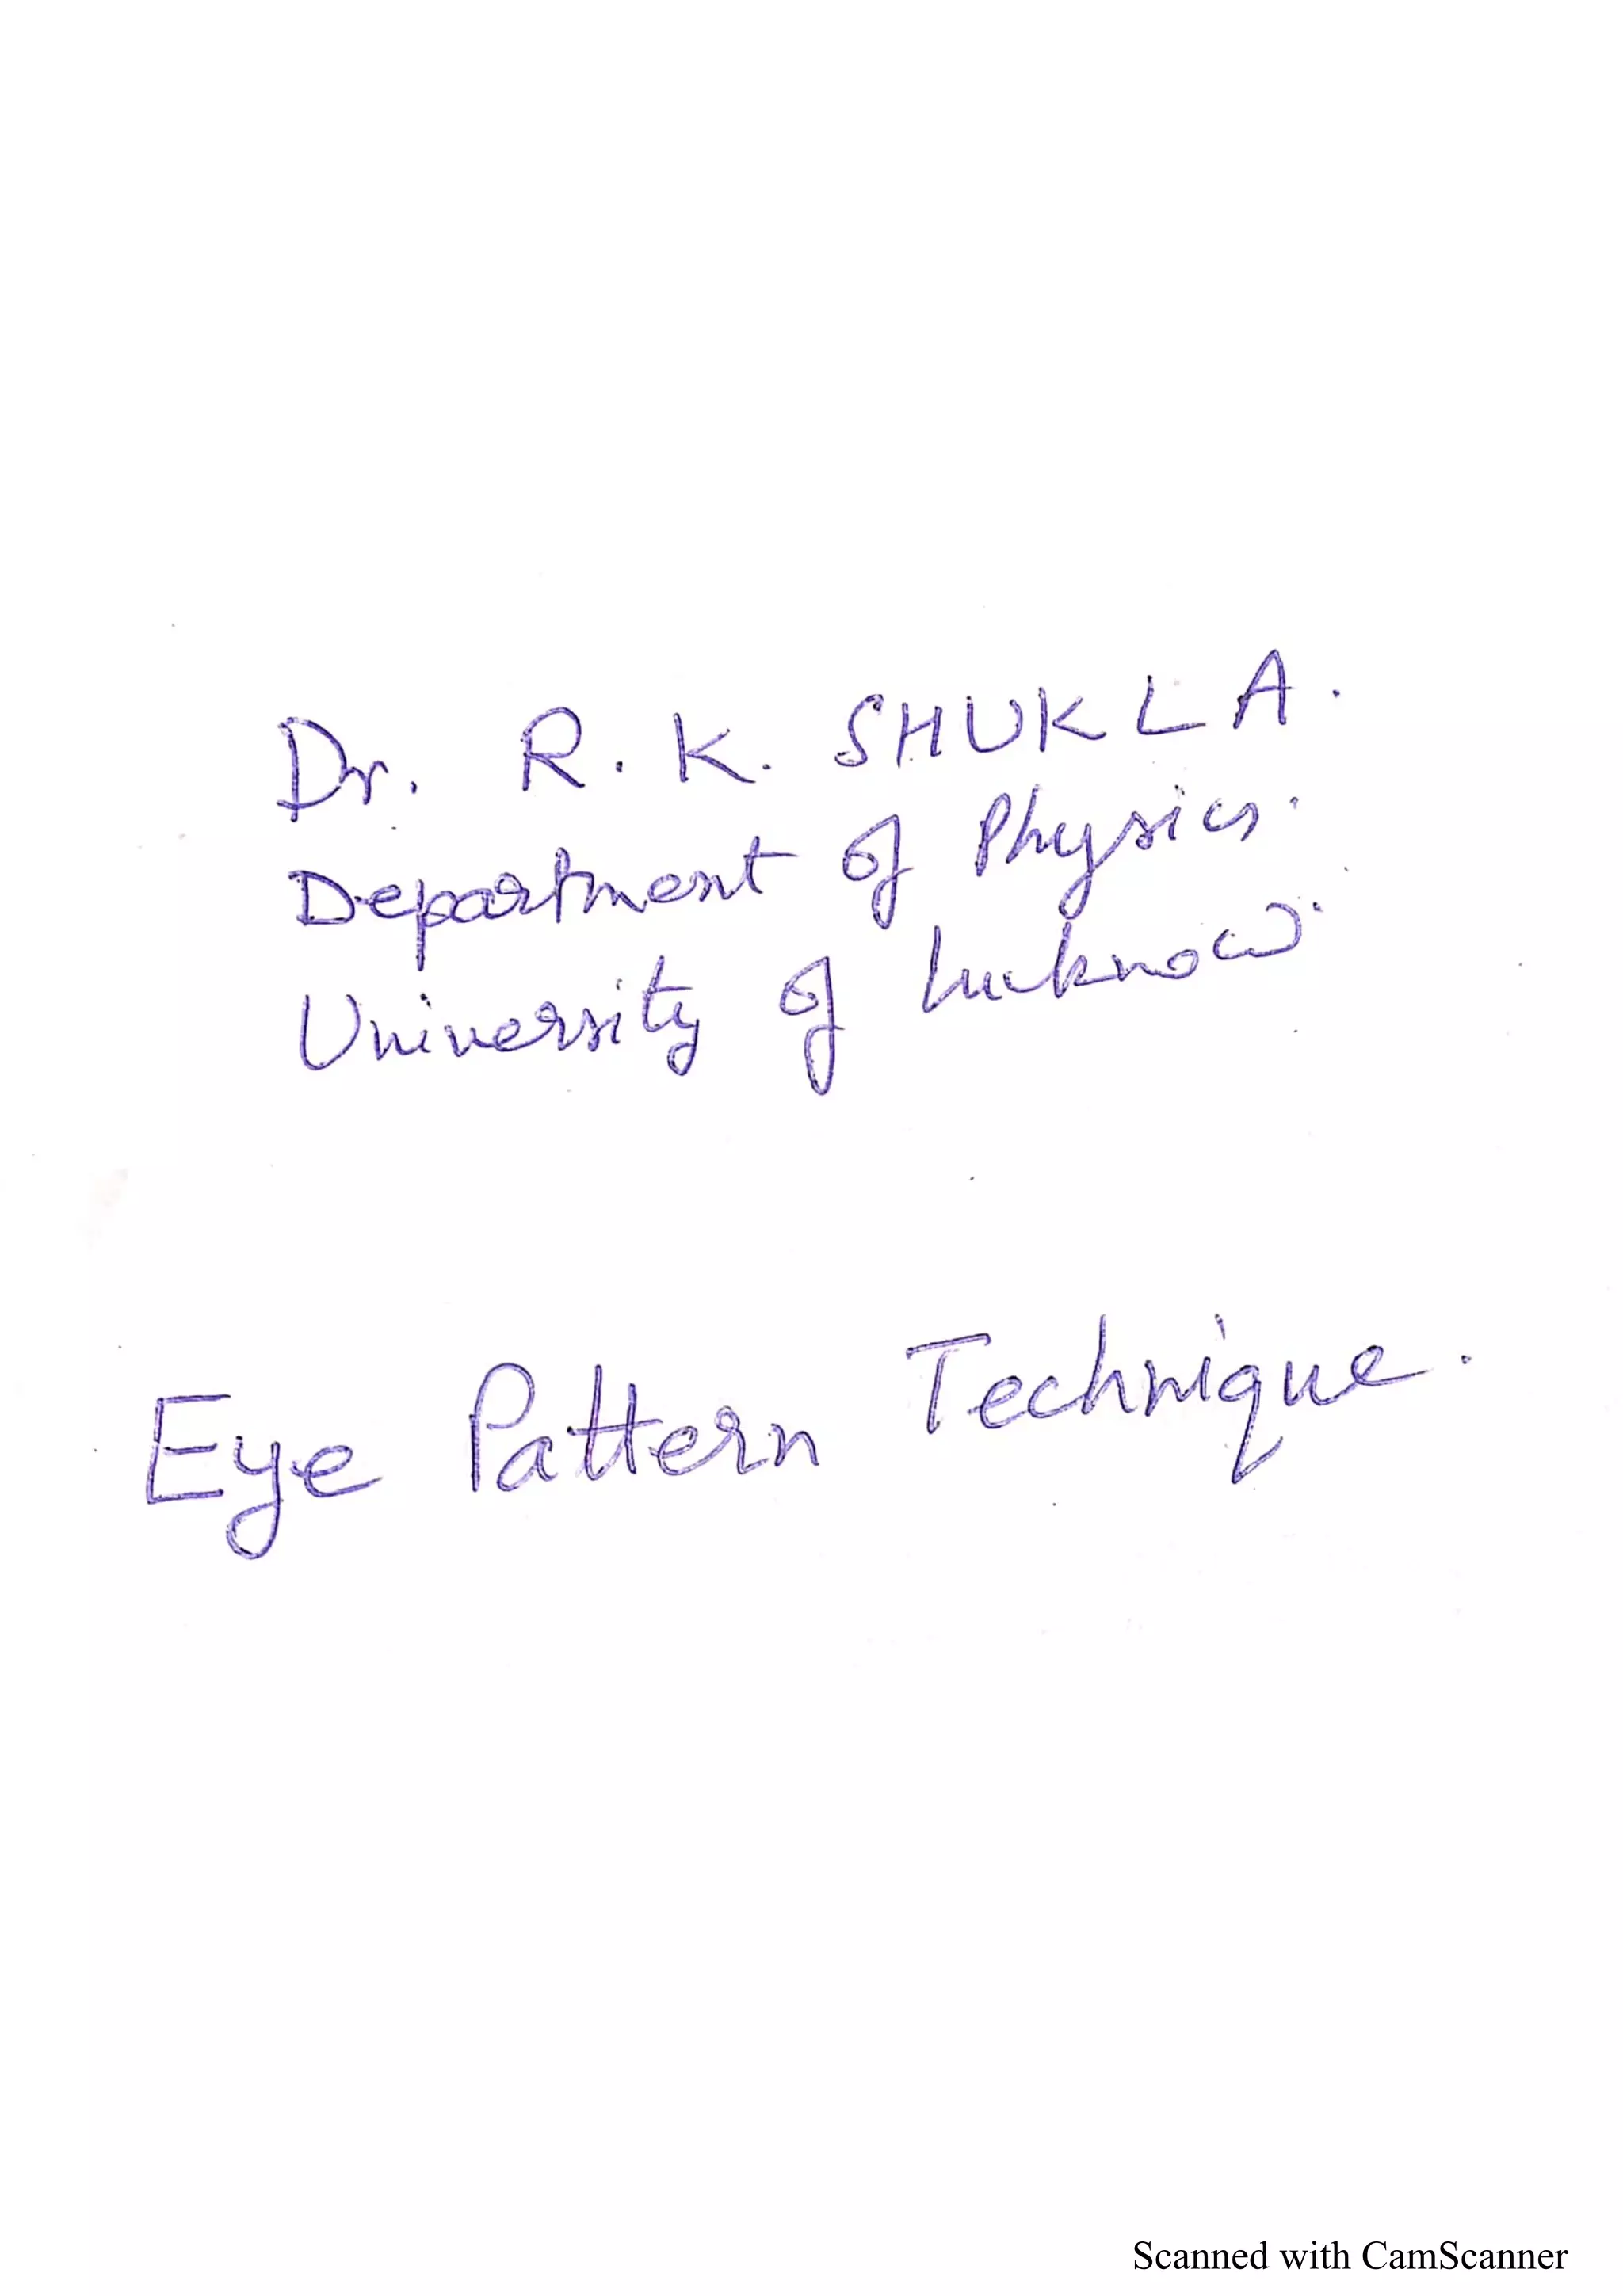 Dr. R. K. SHUKLA.
Department of Physics.
University of Lucknow.
Eye Pattern Technique.
Scanned with CamScanner